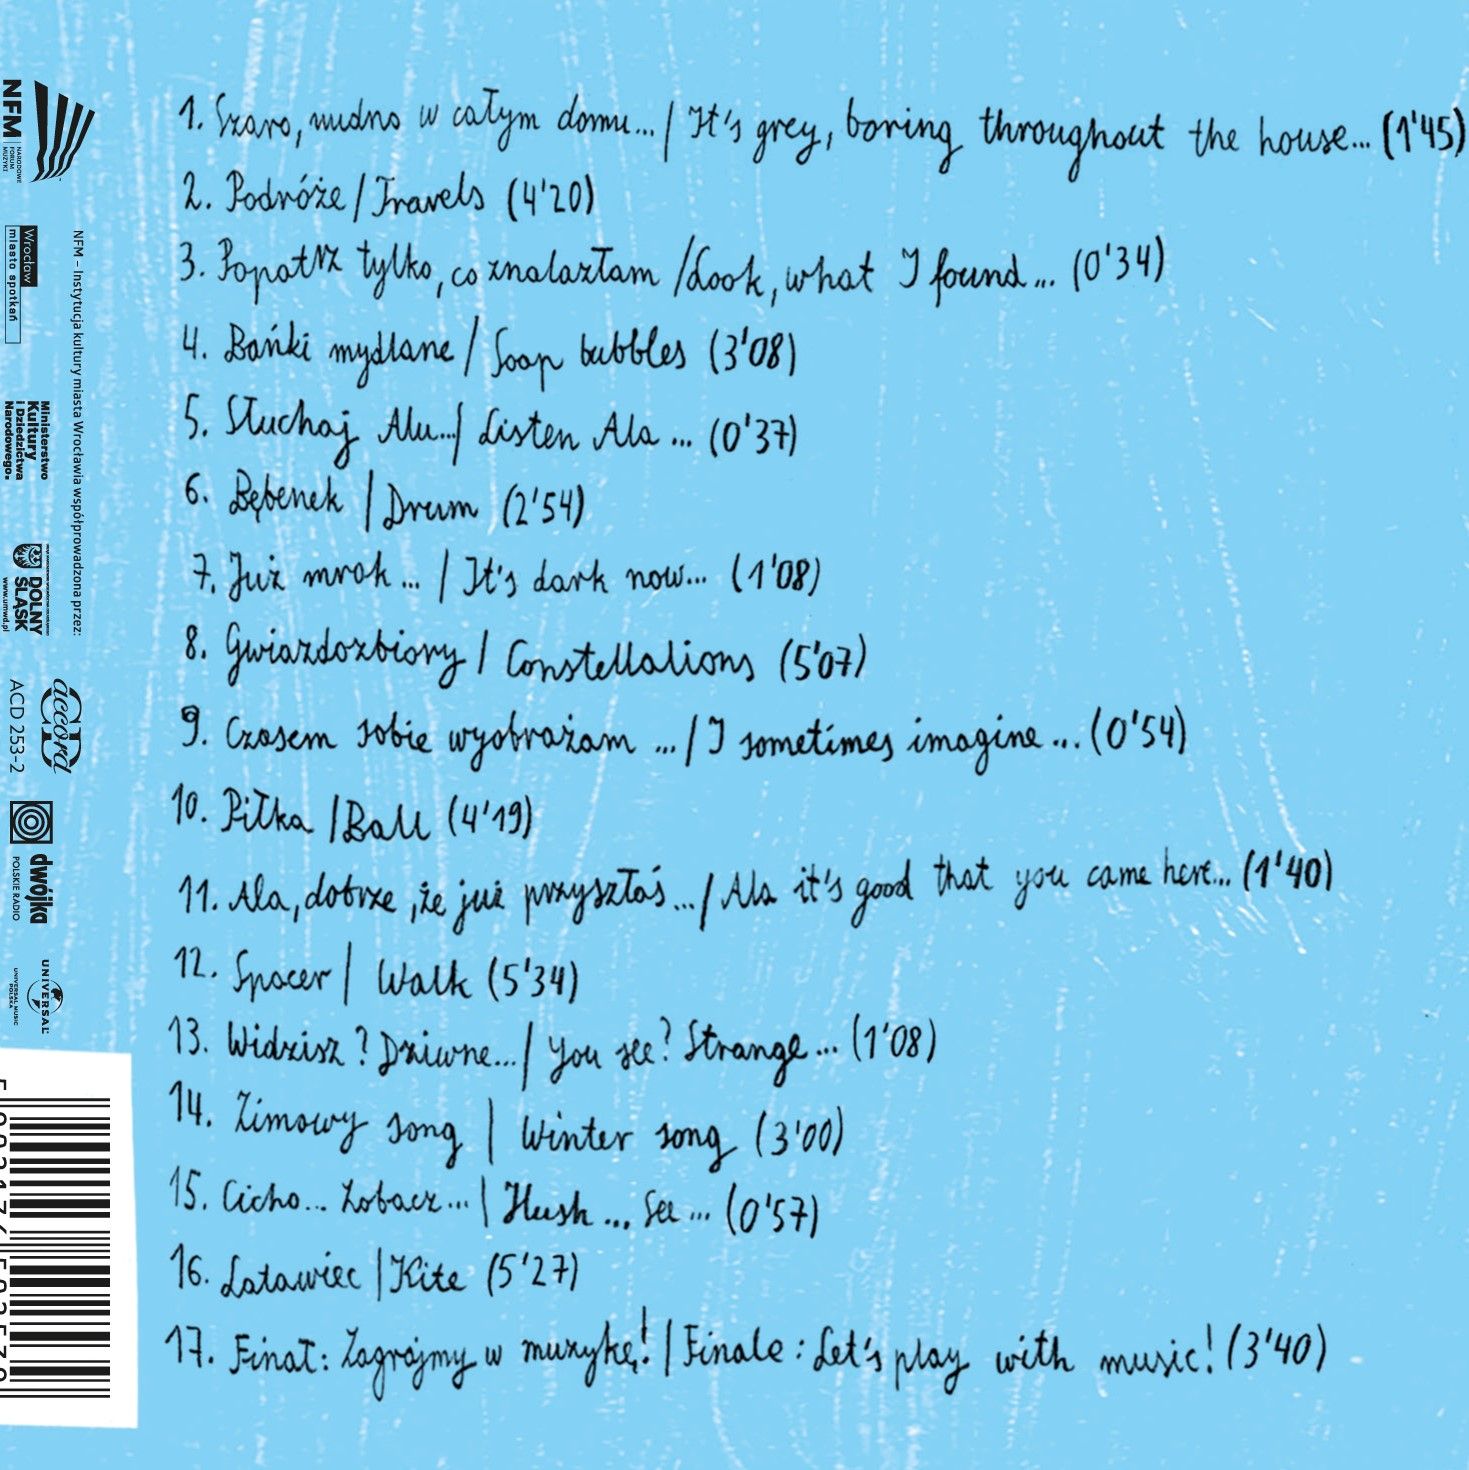 1. Szaro, nudno w całym domu... / It's grey, boring throughout the house... (1'45)
2. Podróże / Travels (4'20)
3. Popatrz tylko, co znalazłam / Look, what I found... (0'34)
4. Bańki mydlane / Soap bubbles (3'08)
5. Słuchaj Alu... / Listen Ala ... (0'37)
6. Bębenek / Drum (2'54)
7. Już mrok ... / It's dark now... (1'08)
8. Gwiazdozbiory / Constellations (5'07)
9. Czasem sobie wyobrażam ... / I sometimes imagine ... (0'54)
10. Piłka / Ball (4'19)
11. Ala, dobrze, że już przyszłaś ... / Ala it's good that you came here... (1'40)
12. Spacer / Walk (5'34)
13. Widzisz? Dziwne... / You see? Strange ... (1'08)
14. Zimowy song / Winter song (3'00)
15. Cicho... Zobacz... / Hush ... See ... (0'57)
16. Latawiec / Kite (5'27)
17. Finał: Zagrajmy w muzykę! / Finale: Let's play with music! (3'40)
NFM – Instytucja kultury miasta Wrocławia współprowadzona przez:
NFM
NARODOWE
FORUM
MUZYKI
Wrocław
miasto spotkań
Ministerstwo
Kultury
i Dziedzictwa
Narodowego.
DOLNY
ŚLĄSK
www.umwd.pl
CD accord
ACD 253-2
dwójka
POLSKIE RADIO
UNIVERSAL
UNIVERSAL MUSIC
POLSKA